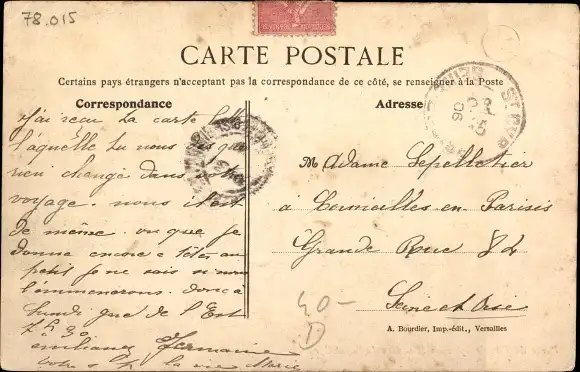 78.015
CARTE POSTALE
Certains pays étrangers n'acceptant pas la correspondance de ce côté, se renseigner à la Poste
Correspondance
Adresse
j'ai recu ta carte
laquelle tu nous
rien changé dans
voyage. nous
de même. vu que je
donne encore a téter au
petit je ne sais si nous
l'emmenerons. donc à
Lundi gare de l'Est
7h 30
Germaine
Marie
Madame Lepelletier
à Cormeilles en Parisis
Grande Rue 82
Seine et Oise
40-
D
A. Bourdier, Imp.-édit., Versailles